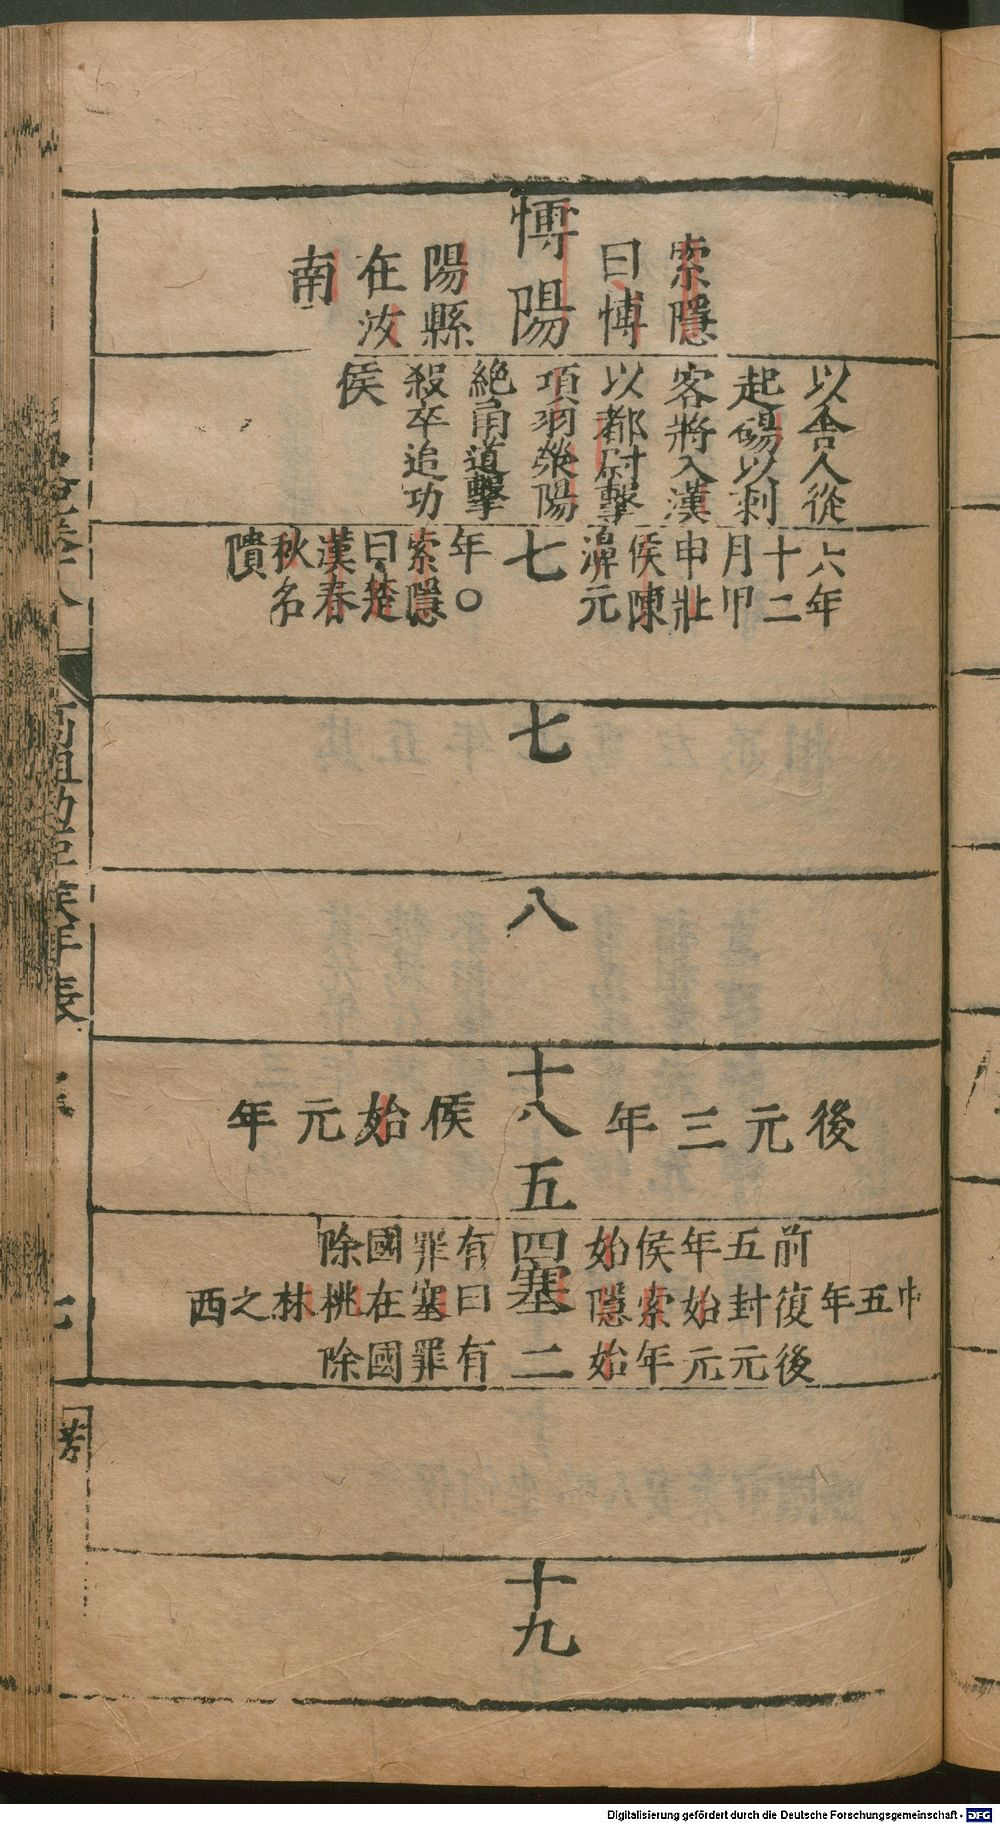 索隱
曰愽
愽陽
陽縣
在汝
南
以舍人從
起碭以刺
客將入漢
以都尉擊
項羽滎陽
絶甬道擊
殺卒追功
侯
六年
十二
月甲
申壯
侯陳
濞元
七
年○
索隱
曰楚
漢春
秋名
隫
七
八
後元三年
十八
侯始元年
五
前五年侯始四有罪國除
中五年復封始索隱塞曰塞在桃林之西
後元元年始二有罪國除
十九
高祖功臣侯年表
Digitalisierung gefördert durch die Deutsche Forschungsgemeinschaft - DFG